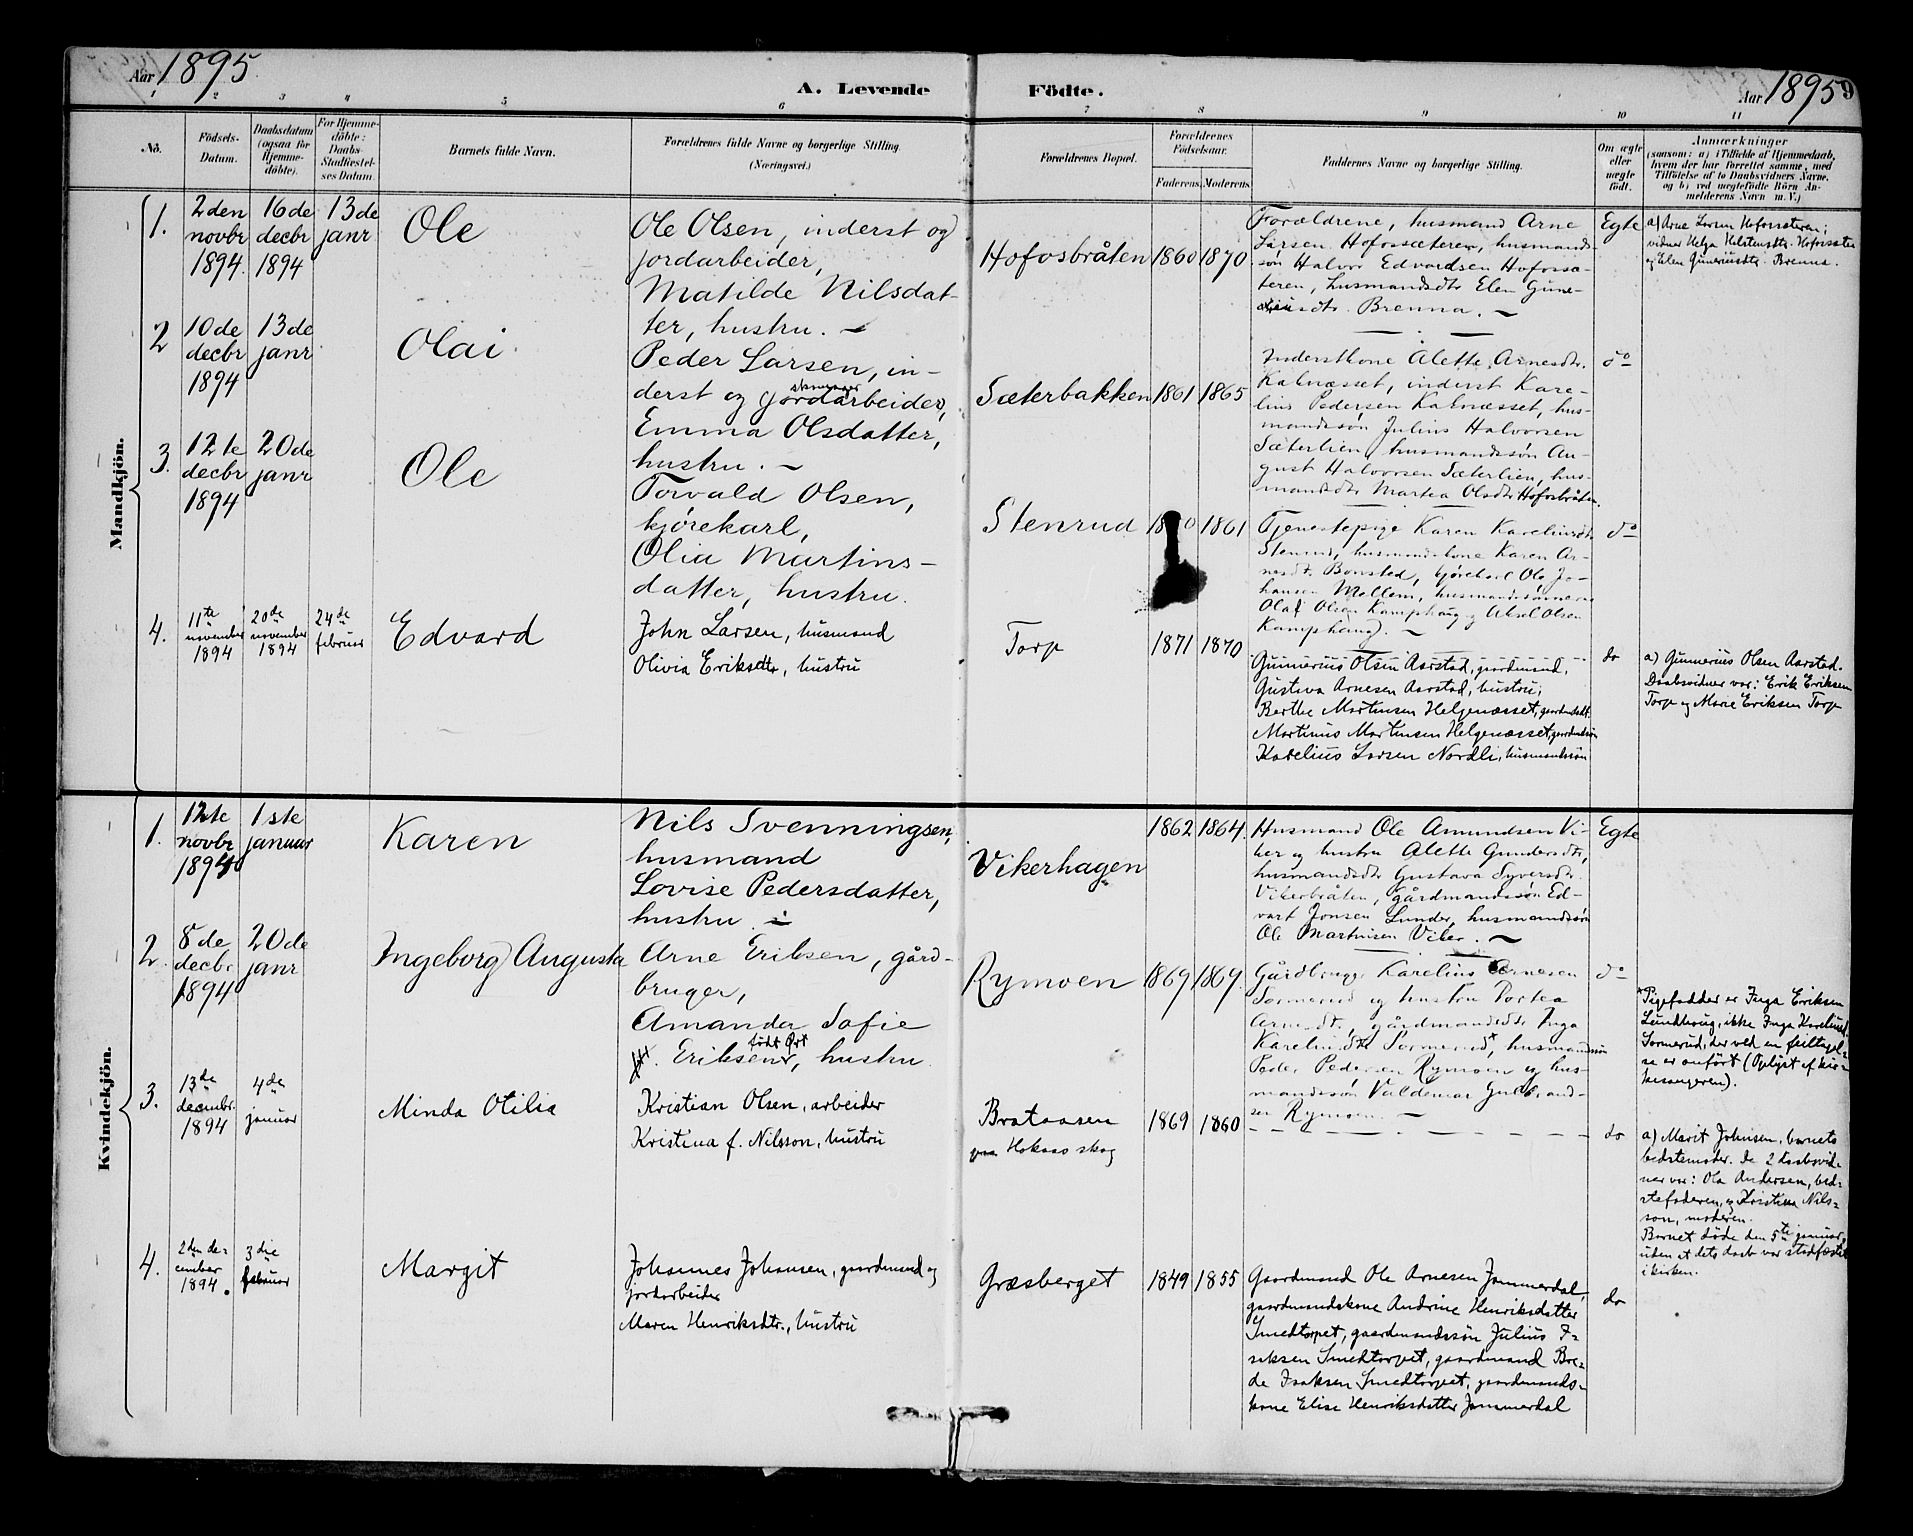 Aar 1895
A. Levende Födte.
Aar 1895 9
1 2 3 4 5 6 7 8 9 10 11
No.
Födsels-
Datum.
Daabsdatum
(ogsaa for
Hjemme-
döbte).
For Hjemme-
döbte:
Daabs-
Stadfæstel-
ses Datum.
Barnets fulde Navn.
Forældrenes fulde Navne og borgerlige Stilling
(Næringsvei.)
Forældrenes Bopæl.
Forældrenes
Födselsaar.
Faderens. Moderens.
Faddernes Navne og borgerlige Stilling.
Om ægte
eller
uægte
födt.
Anmærkninger
(saasom: a) i Tilfælde af Hjemmedaab,
hvem der har forrettet samme, med
Tilföielse af to Daabsvidners Navne,
og b) ved uægtefödte Börn An-
melderens Navn m. V.)
Mandkjön.
1.
2den
novbr
1894.
16de
decbr
1894
13de
janr
Ole
Ole Olsen, inderst og
jordarbeider,
Matilde Nilsdat-
ter, hustru. –
Hofosbråten
1860
1870
Forældrene, husmand Arne
Larsen Hofossæteren, husmands-
søn Halvor Edvardsen Hofossæ-
teren, husmandsdtr Elen Gune-
riusdtr. Brenna. –
Egte
a) Arne Larsen Hofossæteren;
vidner Helga Helstensdtr. Hofossæter
og Elen Guneriusdtr. Brenna.
2
10de
decbr
1894
13de
janr
Olai
Peder Larsen, in-
derst og jordarbeider,
Emma Olsdatter,
hustru. –
Sæterbakken
1861
1865
Inderstkone Alette Arnesdtr.
Kalnæsset, inderst Kare-
lius Pedersen Kalnæsset, hus-
mandssøn Julius Halvorsen
Sæterlien, husmandssøn Au-
gust Halvorsen Sæterlien, hus-
mandsdtr Martea Olsdtr Hofosbråten.
do
3.
12te
decbr
1894
20de
janr
Ole
Torvald Olsen,
kjørekarl,
Olia Martins-
datter, hustru.
Stenrud
1861
Tjenestepige Karen Kareliusdtr
Stenrud, husmandskone Karen Ar-
nesdt. Bonsted, kjørekarl Ole Jo-
hansen Mellem, husmandssønnerne
Olaf Olsen Kamphaug og Aksel Olsen
Kamphaug). –
do
4.
11te
november
1894
20de
november
1894
24de
februar
Edvard
John Larsen, husmand
Olivia Eriksdtr, hustru
Torp
1871
1870
Gunnerius Olsen Aarstad, gaardmand,
Gustava Arnesen Aarstad, hustru;
Berthe Martinsen Helgenæsset, gaardmdsdt.
Martinus Martinsen Helgenæsset, gaardmdssøn
Karelius Larsen Nordli, husmandssøn
do
a) Gunnerius Olsen Aarstad.
Daabsvidner var: Erik Eriksen
Torp og Marie Eriksen Torp
Kvindekjön.
1.
12te
novbr
1894
1ste
januar
Karen
Nils Svenningsen,
husmand
Lovise Pedersdatter,
hustru.
Vikerhagen
1862
1864.
Husmand Ole Amundsen Vi-
ker og hustru Alette Gundersdtr,
husmandsdtr Gustava Syversdtr.
Vikerbråten, gårdmandssøn Ed-
vart Jonsen Lunder, husmandssøn
Ole Martinsen Viker. –
Egte
2.
8de
decbr.
1894
20de
janr
Ingeborg Augusta
Arne Eriksen, gård-
bruger,
Amanda Sofie
Eriksen, født Ort, hustru.
Rymoen
1869
1869.
Gårdbruger Karelius Arnesen
Sormerud og hustru Portea
Arnesdt, gårdmandsdtr Inga
Kareliusdtr Sormerud*, husmandssøn
Peder Pedersen Rymoen og hus-
mandssøn Valdemar Gulbrand-
sen Rymoen. –
do
*Pigefadder er Inga Eriksen
Lundhaug, ikke Inga Kareliusd.
Sormerud, der ved en feiltagel-
se er anført (Oplyst af kir-
kesangeren).
3.
13de
decembr.
1894
4de
januar
Minda Otilia
Kristian Olsen, arbeider
Kristina f. Nilsson, hustru
Brataasen
paa Hokaas skog
1869
1860
do
a) Marit Johnsen, barnets
bedstemoder. De 2 daabsvid-
ner var: Ole Andersen, bed-
stefaderen, og Kristina Nils-
son, moderen.
Barnet døde den 5te januar,
uden at dets daab var stadfæstet
i kirken.
4.
2den de-
cember
1894.
3die
februar
Margit
Johannes Johansen, gaardmand og
jordarbeider
Maren Henriksdtr., hustru
Græsberget
1849
1855
Gaardmand Ole Arnesen Jammerdal,
gaardmandskone Andrine Henriksdatter
Smedtorpet, gaardmandssøn Julius I-
saksen Smedtorpet, gaardmand Bre-
de Isaksen Smedtorpet, gaardmands-
kone Elise Henriksdatter Jammerdal
do